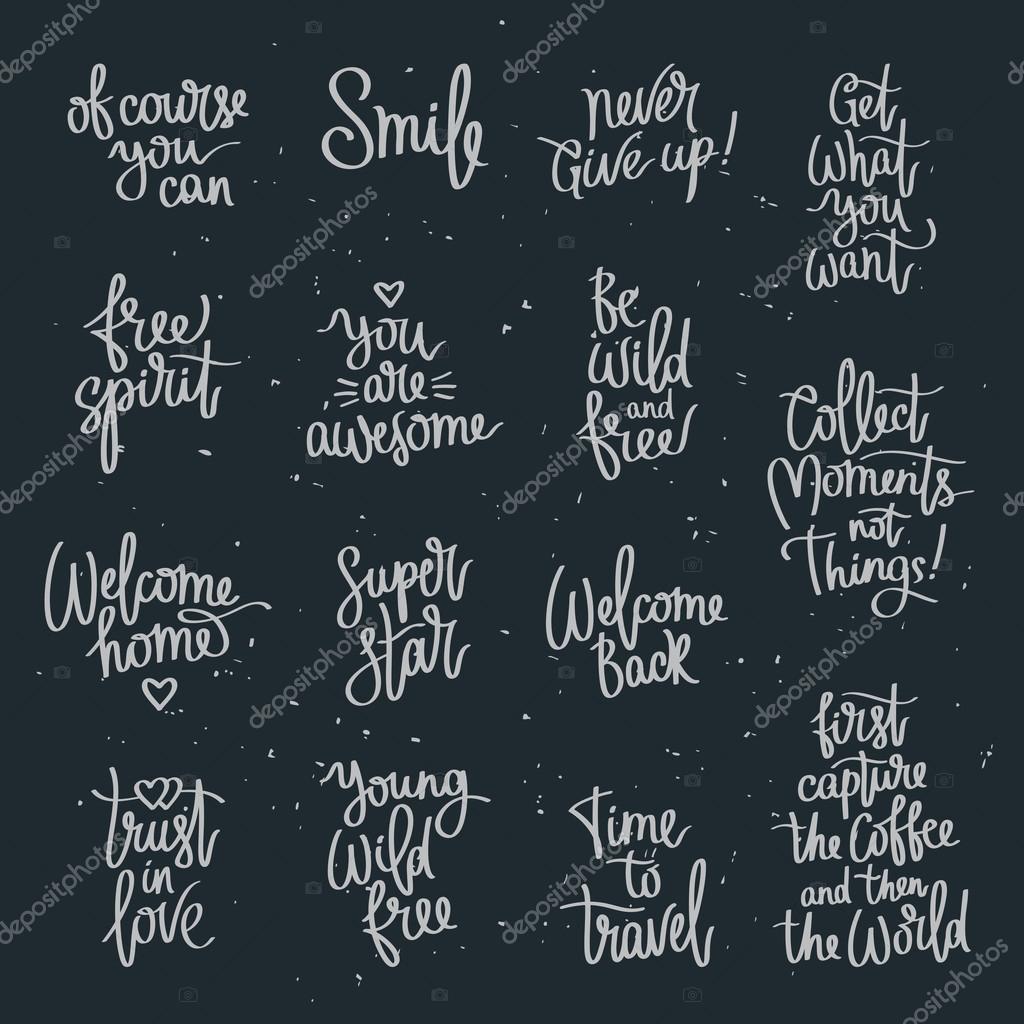 of course
you
can
Smile
never
Give up!
Get
What
you
want
free
spirit
you
are
awesome
Be
Wild
and
free
Collect
Moments
not
Things!
Welcome
home
Super
star
Welcome
Back
trust
in
love
Young
Wild
free
Time
to
travel
first
capture
the Coffee
and then
the World
depositphotos
depositphotos
depositphotos
depositphotos
depositphotos
depositphotos
depositphotos
depositphotos
depositphotos
depositphotos
depositphotos